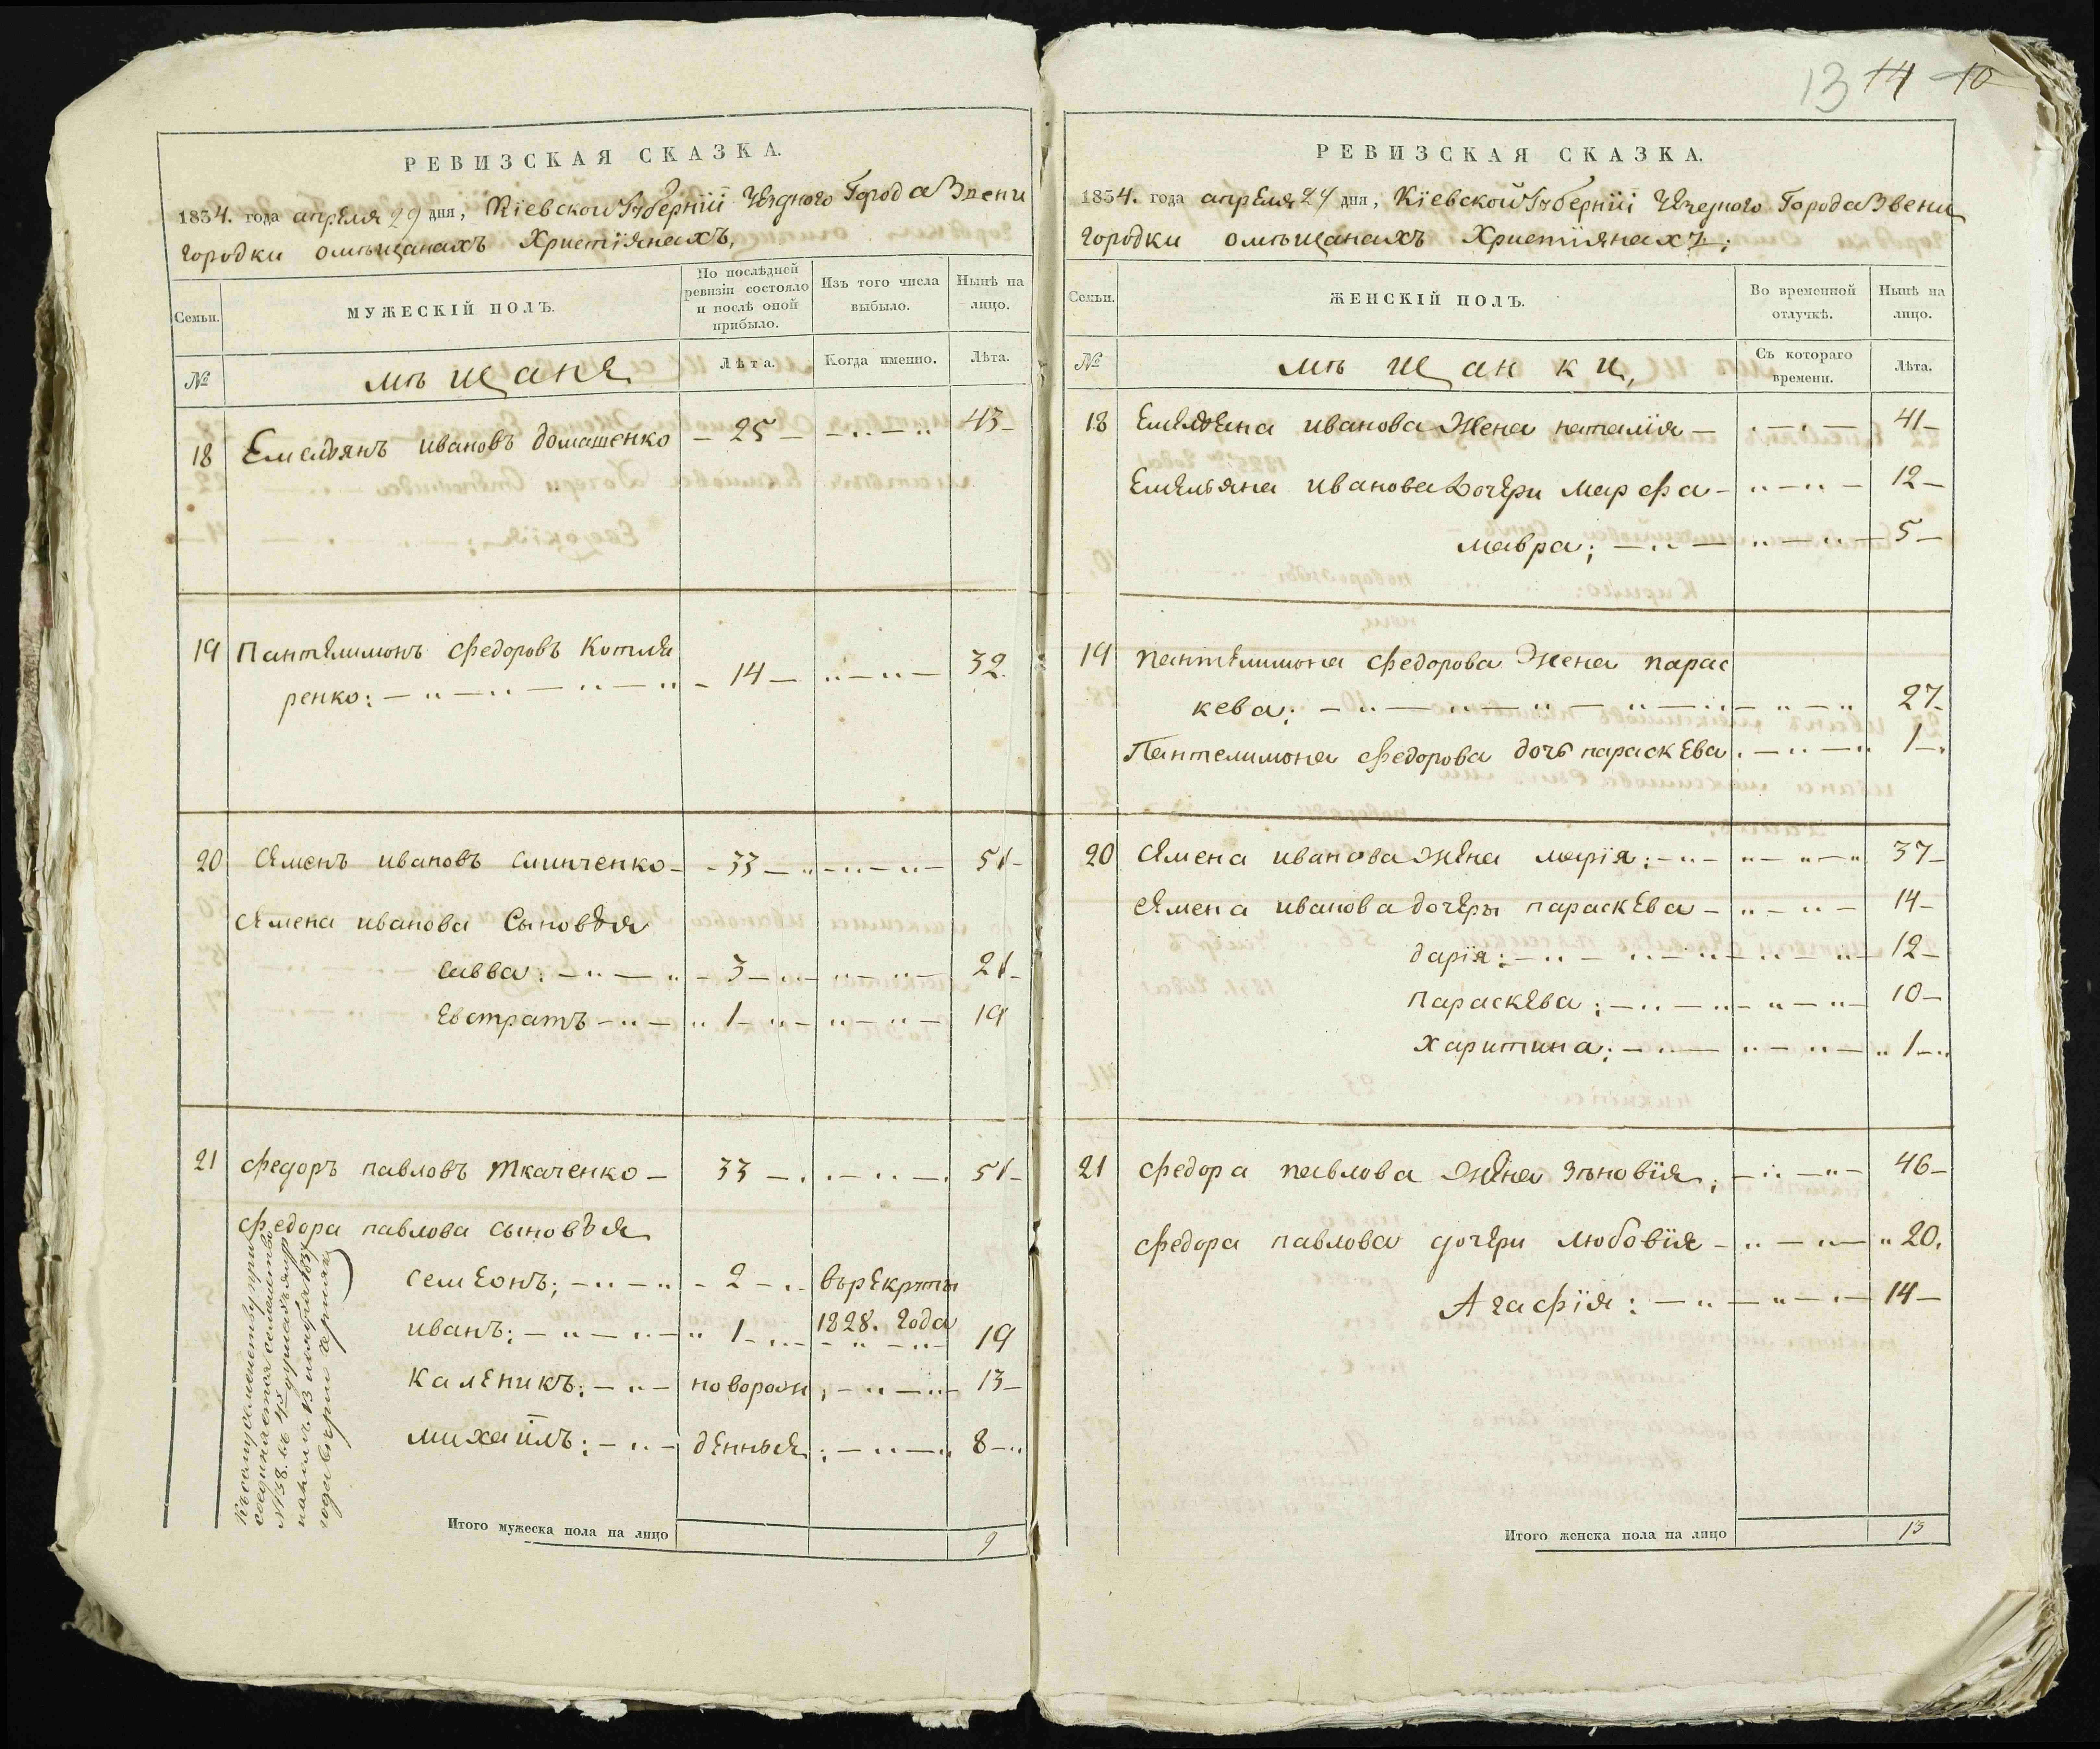 РЕВИЗСКАЯ СКАЗКА.
1834. года апреля 29 дня, Кіевской Губерніи Уездного Города Звени
городки омѣщанахъ Христіянахъ,
Семьи.
МУЖЕСКІЙ ПОЛЪ.
По послѣдней ревизіи состояло и послѣ оной прибыло.
Изъ того числа выбыло.
Нынѣ на лицо.
№
мѣщане
Лѣта.
Когда именно.
Лѣта.
18 Емельянъ ивановъ домашенко — 25 — 43
19 Пантелимонъ федоровъ Котля
ренко: — 14 — 32.
20 Семенъ ивановъ слинченко — 33 — 51
Семена иванова Сыновья
савва: — 3 — 21
Евстратъ — 1 — 19
21 федоръ павловъ Ткаченко — 33 — 51
федора павлова сыновья
семеонъ; — 2 — върекруты
иванъ: — 1 — 1828. года 19
каленикъ: — новорож 13
михаилъ: — денные: — 8
Къ
соединяется семейство
№ 138. въ 45
года
Итого мужеска пола на лицо 9
13 14 10
РЕВИЗСКАЯ СКАЗКА.
1834. года апреля 29 дня, Кіевской Губерніи Уездного Города Звени
городки омѣщанахъ Христіянахъ;
Семьи.
ЖЕНСКІЙ ПОЛЪ.
Во временной отлучкѣ.
Нынѣ на лицо.
№
мѣщанки,
Съ котораго времени.
Лѣта.
18 Емельяна иванова Жена наталія — 41
Емельяна иванова Дочери Марфа — 12
мавра; — 5
19 пантелимона федорова Жена парас
кева: — 27
Пантелимона федорова дочь параскева — 1
20 Семена иванова жена марія: — 37
Семена иванова дочеры параскева — 14
дарія: — 12
параскева: — 10
харитина: — 1
21 федора павлова жена Зѣновія; — 46
федора павлова дочери любовія — 20.
Агафія: — 14
Итого женска пола на лицо 13